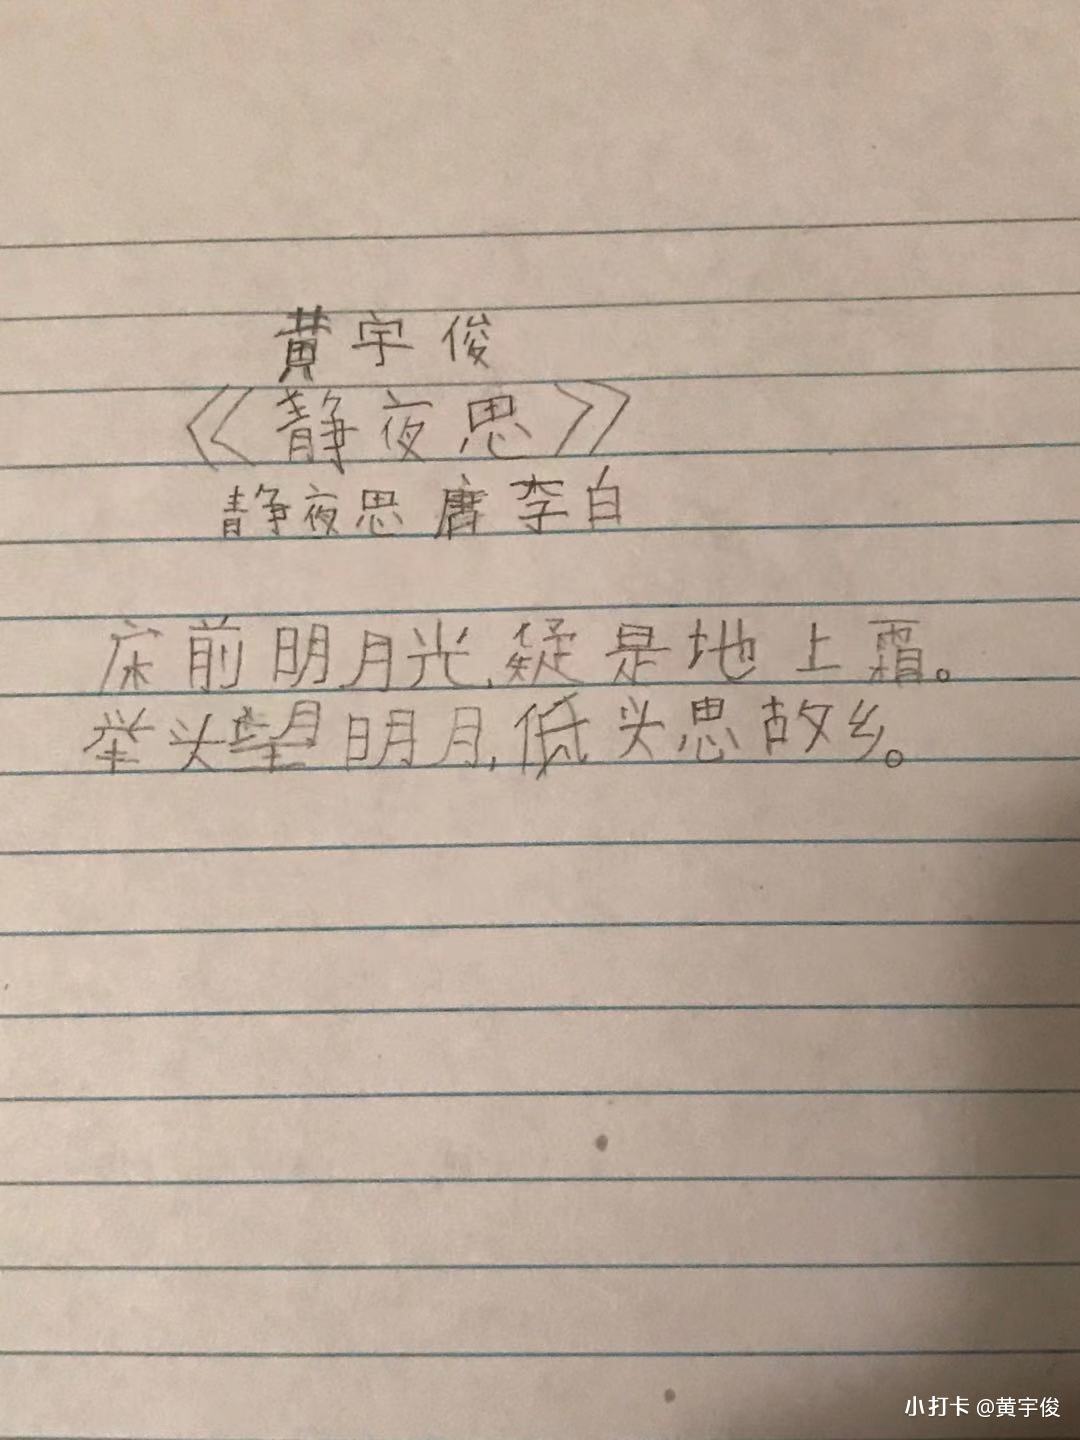 黄宇俊
《静夜思》
静夜思 唐 李白
床前明月光,疑是地上霜。
举头望明月,低头思故乡。
小打卡 @黄宇俊